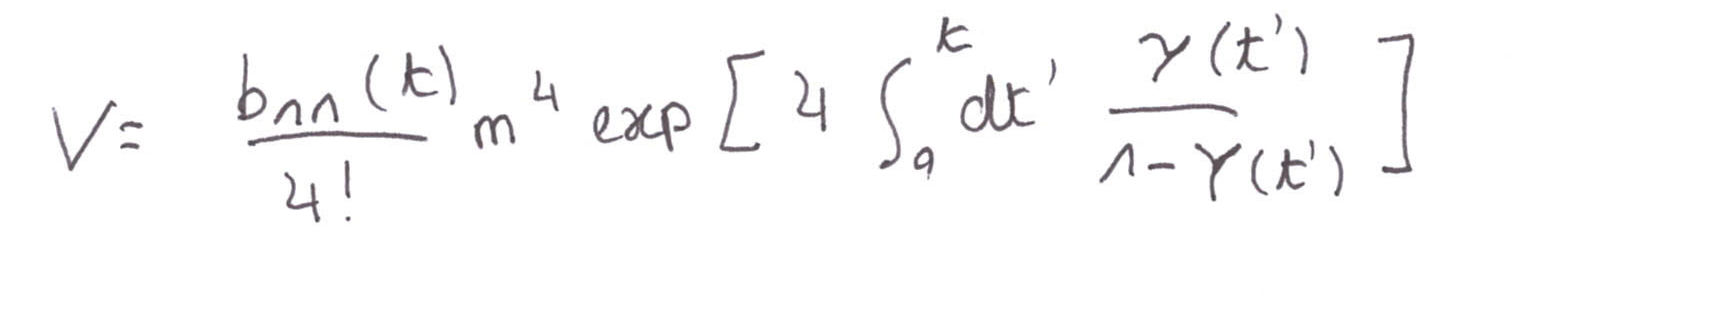 V = \frac{b_{11}(t)}{4!} m^4 exp [ 4 \int_a^t dt' \frac{\gamma(t')}{1 - \gamma(t')} ]